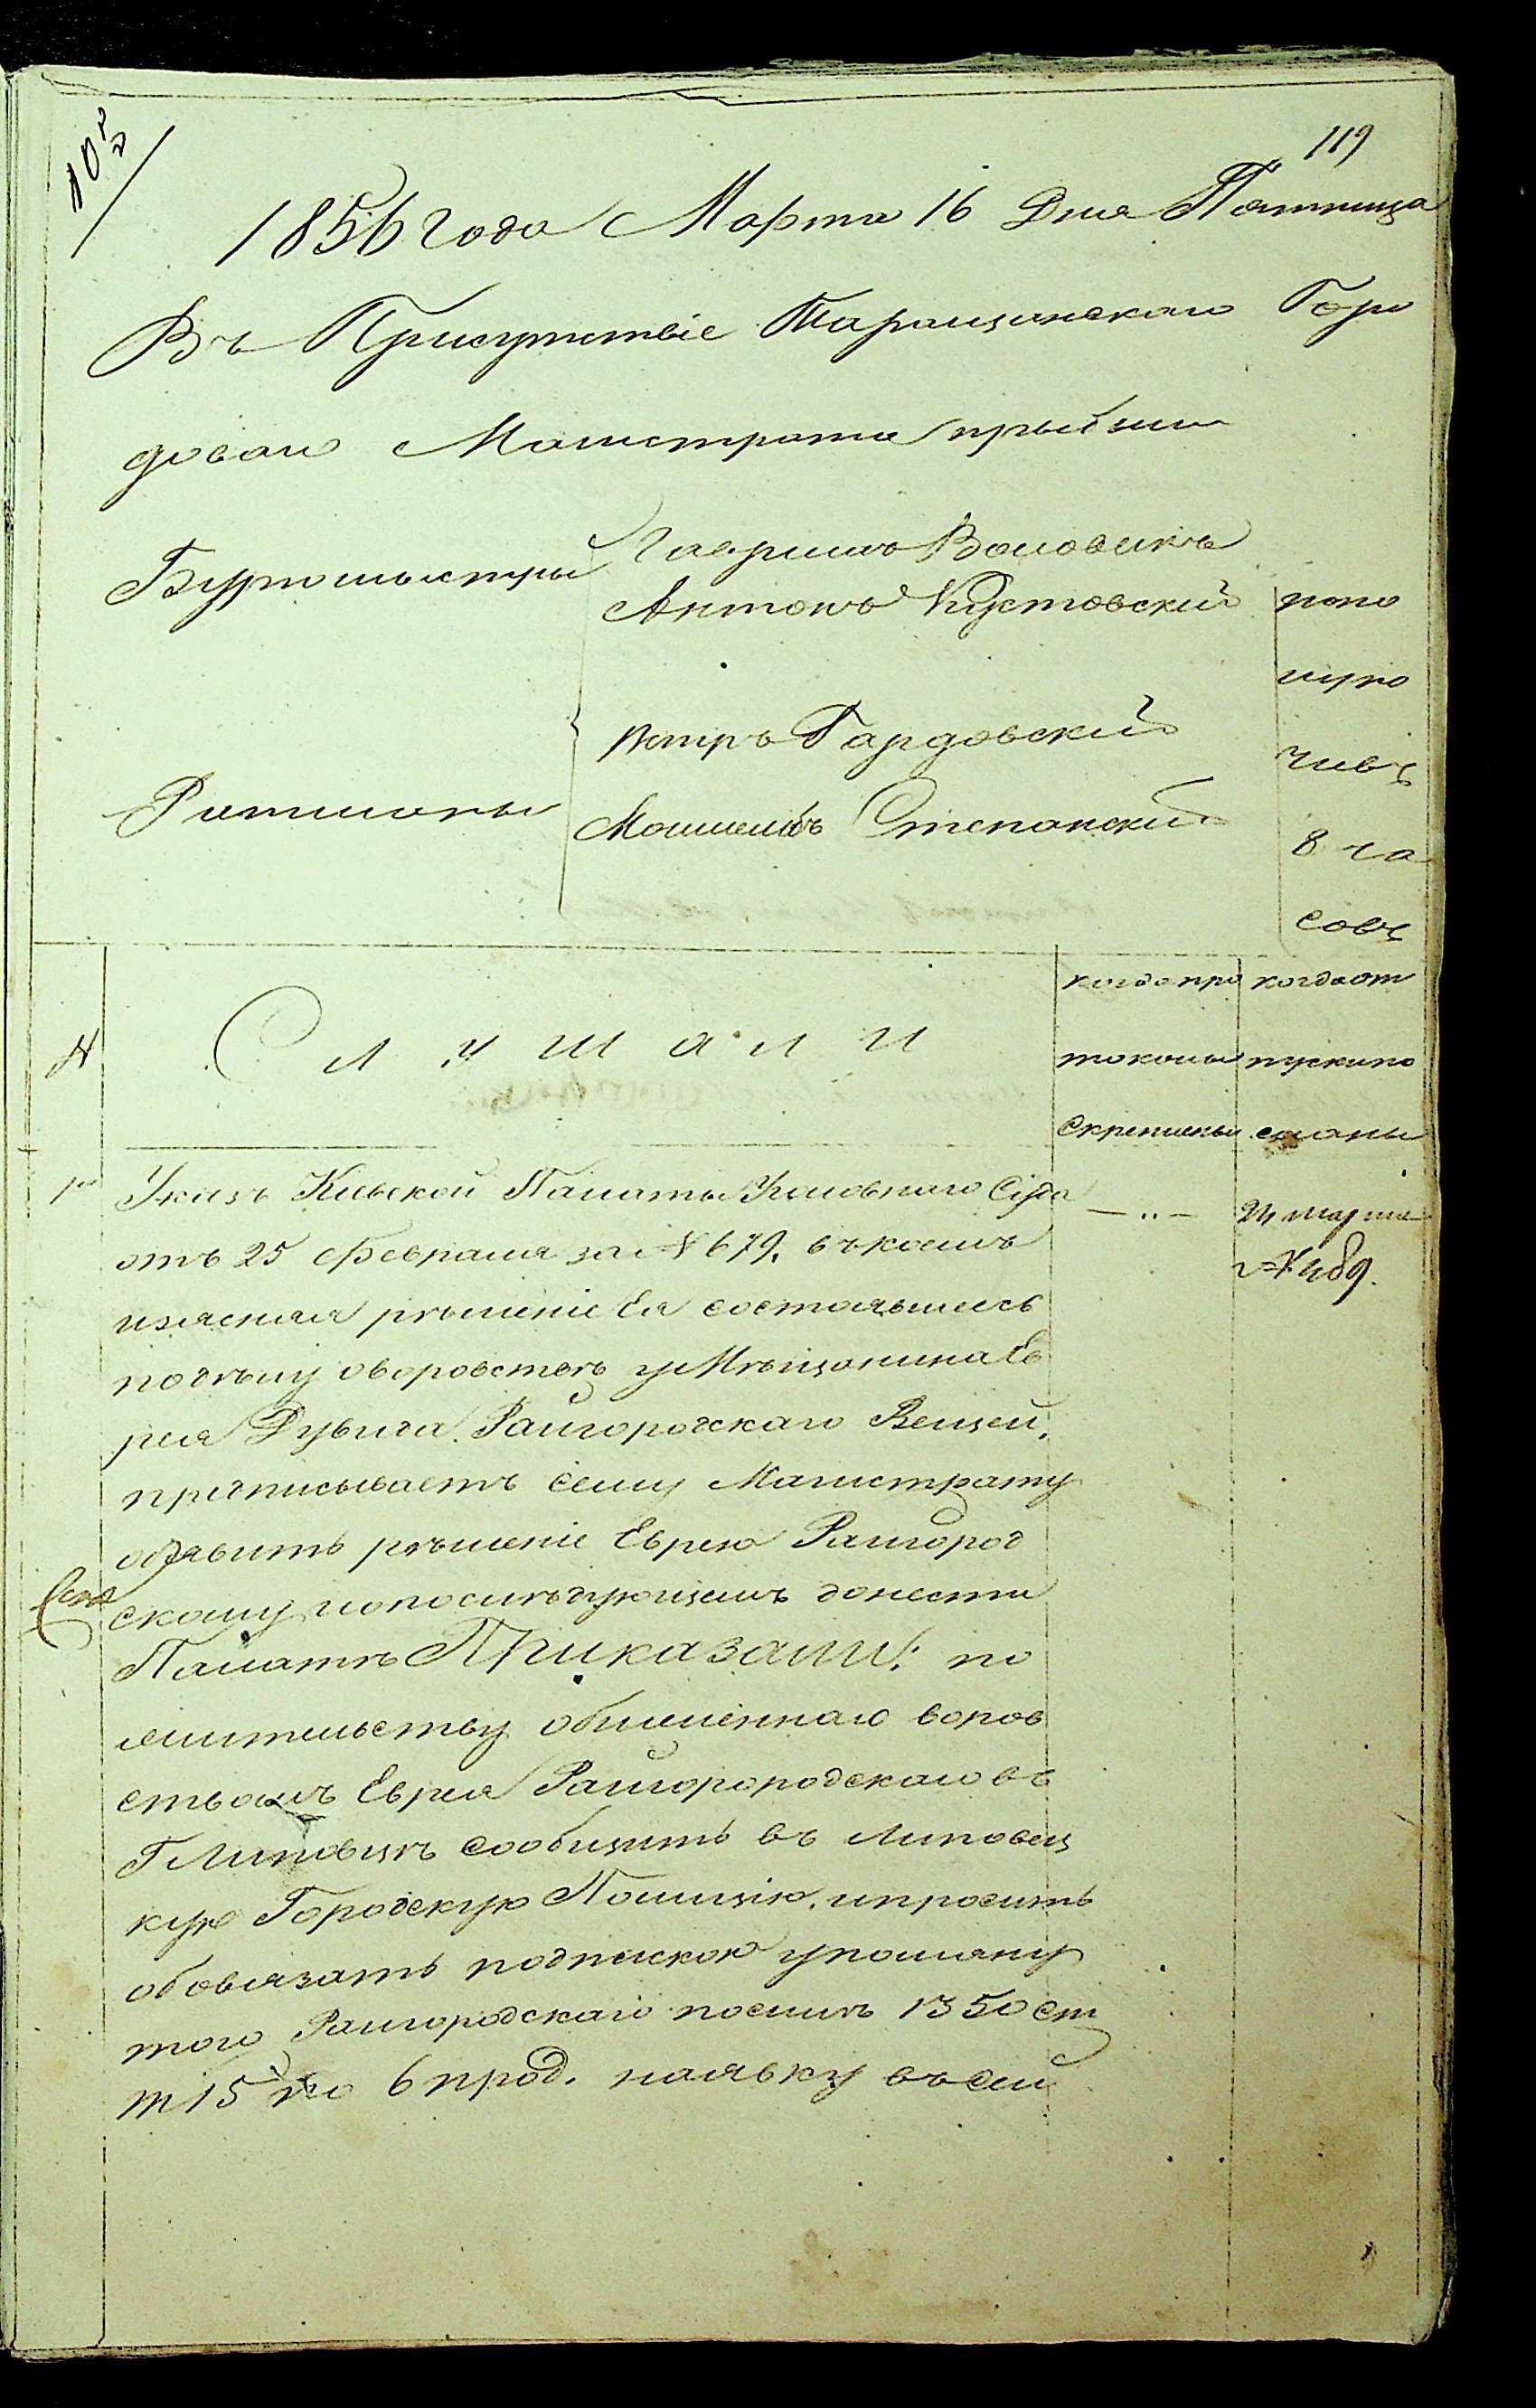 119
1856 года Марта 16 Дня Пятница
Въ Присутствіе Таращанскаго Горо
доваго Магистрата прыбыли
Бургомыстры
Гаврило Воловикъ
Антонъ Кустовский
попо
лудно
Петръ Гардовский
Ратманы
Мошелъ Степанский
8 ча
совъ
№
Слушали
когда про
токолы
скреплены
когда от
пуски по
сланы
1й
Указъ Кіевской Палаты Уголовнаго Суда
отъ 25 Февраля за № 679. въ коемъ
изяснял ръшеніе Ея состоявшеесь
подълу о воровствъ у Мъщанина Ев
рея Дувида Райгородскаго Вещей,
предписываетъ сему Магистрату
обявить ръшеніе Еврею Райгород
скому и о послъдующемъ донести
Палатъ Приказали: по
жительству
воров
ствомъ Еврея Райгорородскаго въ
Г Липовцъ сообщить въ Липовец
кую Городскую Полицію, и просить
обовязать подпискою упомяну
того Райгородскаго посилъ 1350 ст
т 15 по 6 прод. наявку въ сей
24 марта
№ 489.